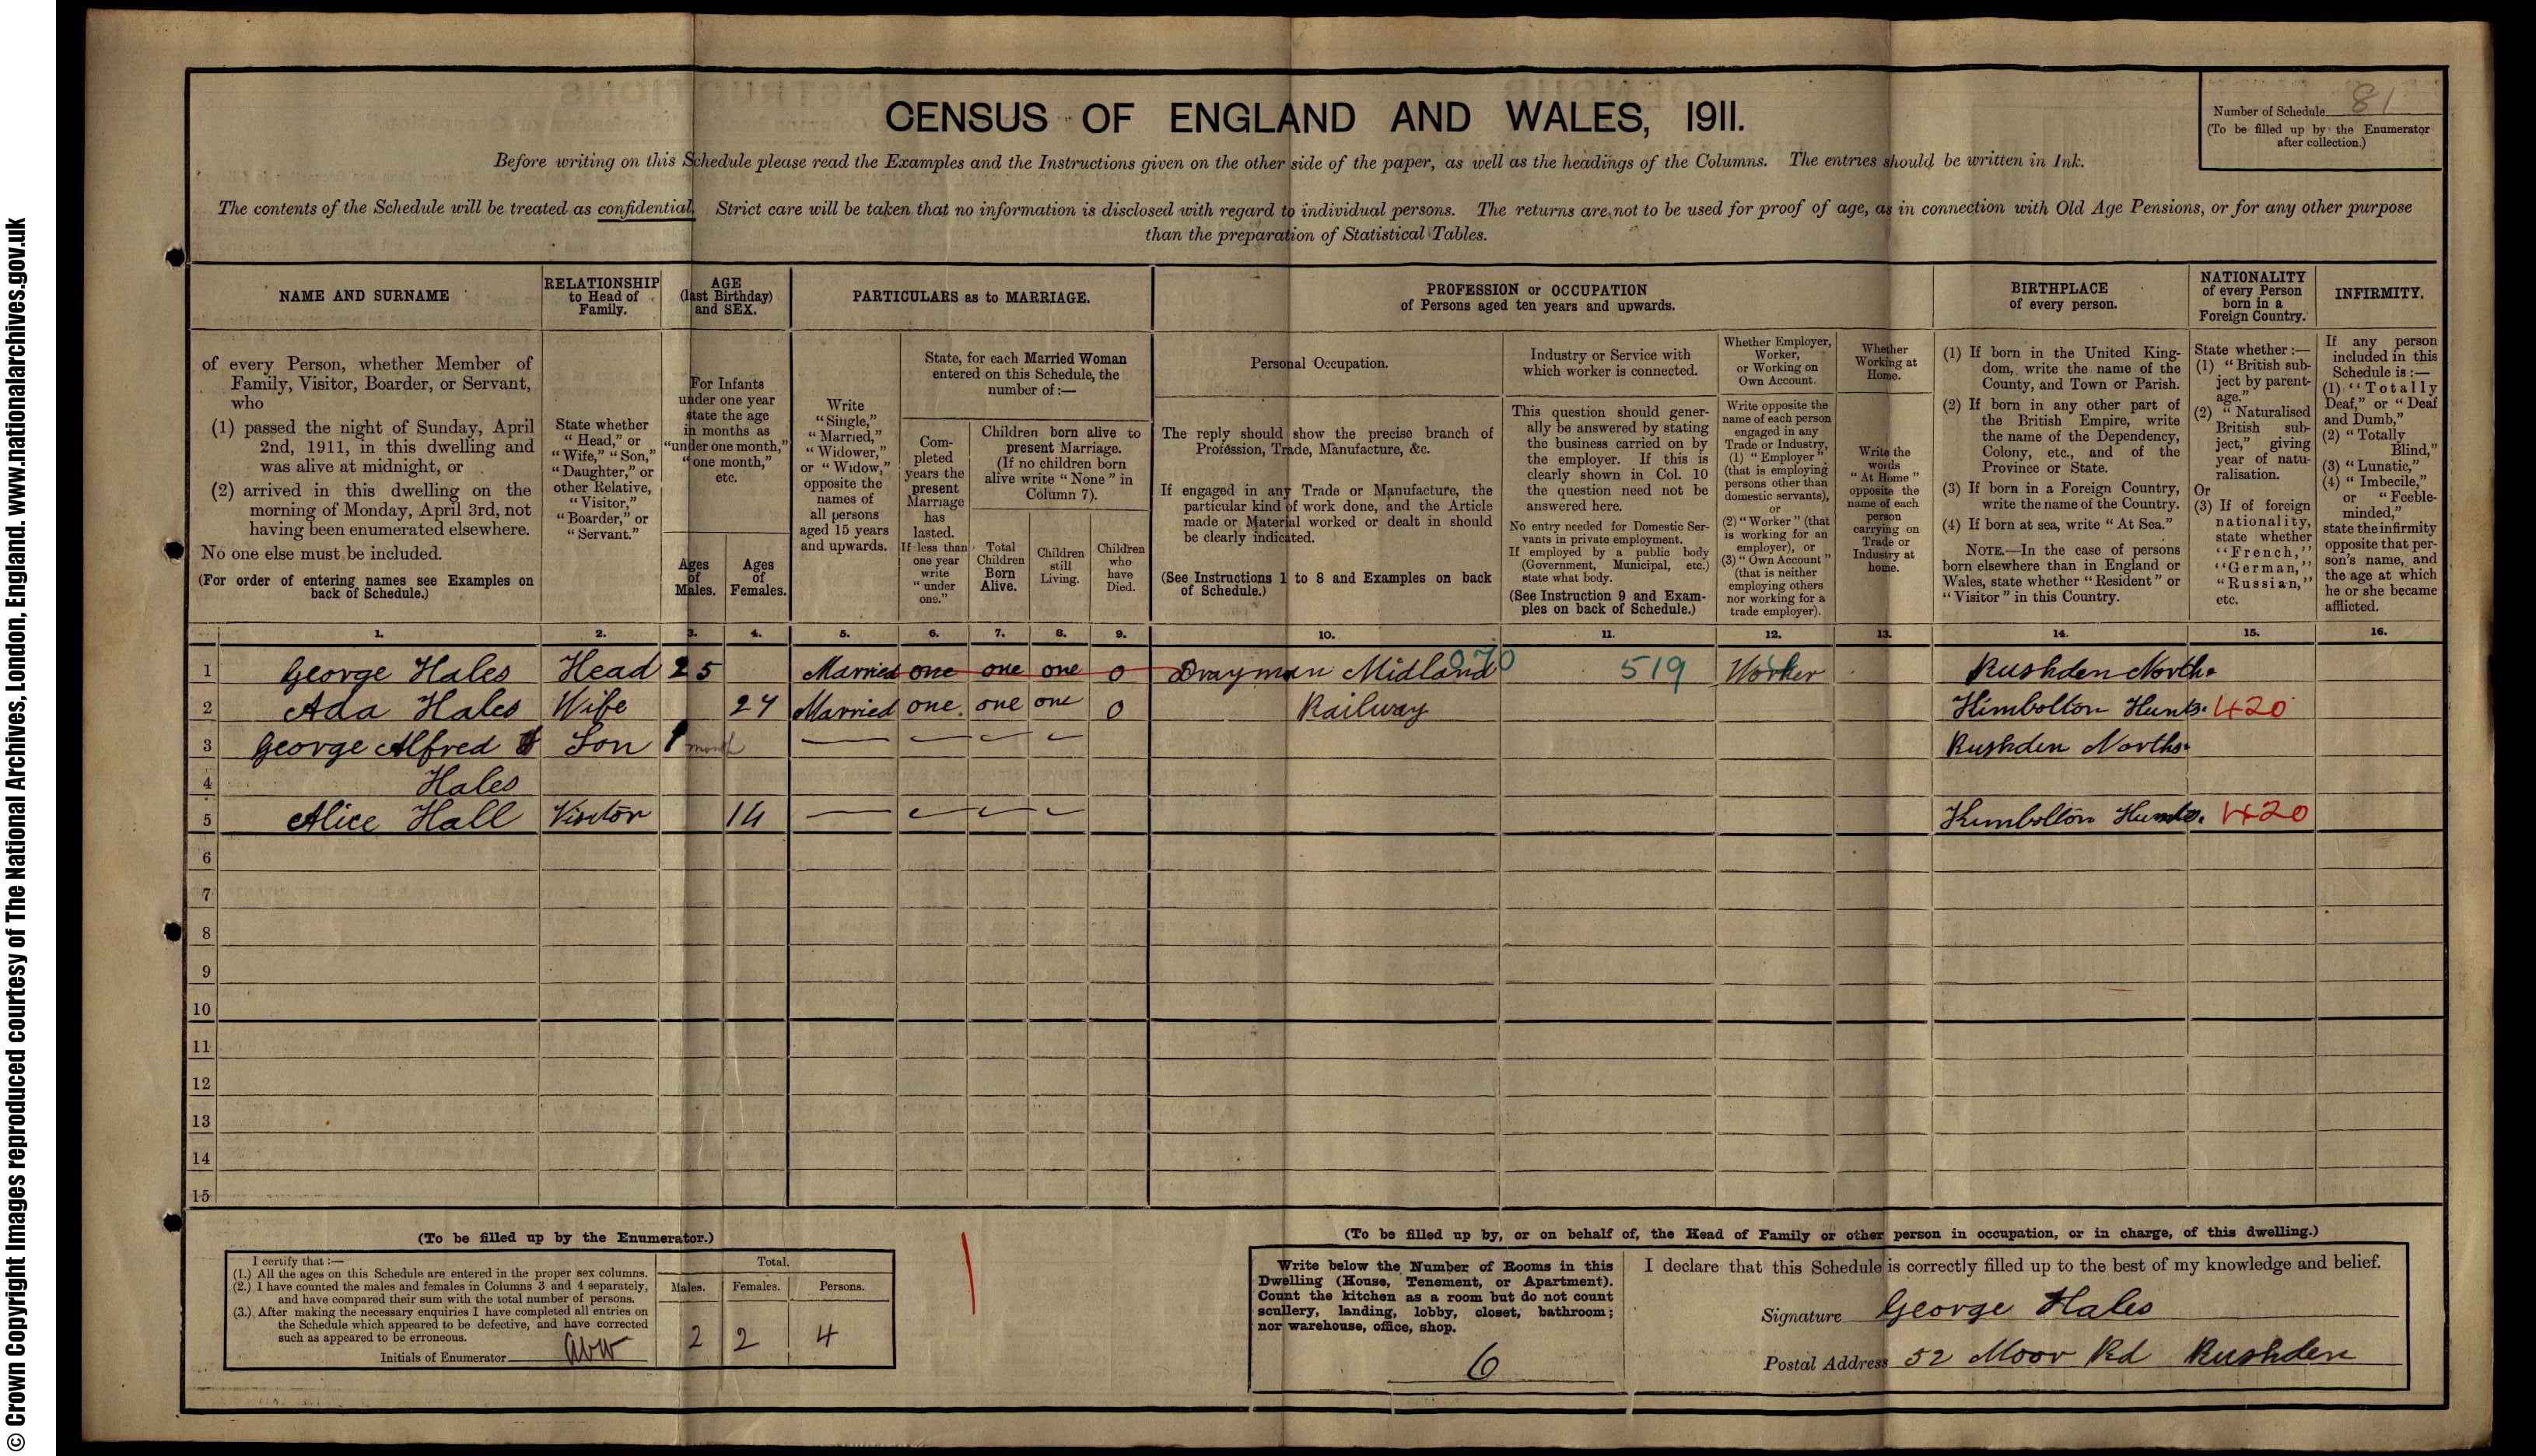 © Crown Copyright Images reproduced courtesy of The National Archives, London, England. www.nationalarchives.gov.uk
CENSUS OF ENGLAND AND WALES, 1911.
Number of Schedule 81
(To be filled up by the Enumerator
after collection.)
Before writing on this Schedule please read the Examples and the Instructions given on the other side of the paper, as well as the headings of the Columns. The entries should be written in Ink.
The contents of the Schedule will be treated as confidential. Strict care will be taken that no information is disclosed with regard to individual persons. The returns are not to be used for proof of age, as in connection with Old Age Pensions, or for any other purpose
than the preparation of Statistical Tables.
NAME AND SURNAME
of every Person, whether Member of
Family, Visitor, Boarder, or Servant,
who
(1) passed the night of Sunday, April
2nd, 1911, in this dwelling and
was alive at midnight, or
(2) arrived in this dwelling on the
morning of Monday, April 3rd, not
having been enumerated elsewhere.
No one else must be included.
(For order of entering names see Examples on
back of Schedule.)
RELATIONSHIP
to Head of
Family.
State whether
"Head," or
"Wife," "Son,"
"Daughter," or
other Relative,
"Visitor,"
"Boarder," or
"Servant."
AGE
(last Birthday)
and SEX.
For Infants
under one year
state the age
in months as
"under one month,"
"one month,"
etc.
Ages
of
Males.
Ages
of
Females.
PARTICULARS as to MARRIAGE.
Write
"Single,"
"Married,"
"Widower,"
or "Widow,"
opposite the
names of
all persons
aged 15 years
and upwards.
State, for each Married Woman
entered on this Schedule, the
number of:—
Com-
pleted
years the
present
Marriage
has
lasted.
If less than
one year
write
"under
one."
Children born alive to
present Marriage.
(If no children born
alive write "None" in
Column 7).
Total
Children
Born
Alive.
Children
still
Living.
Children
who
have
Died.
PROFESSION or OCCUPATION
of Persons aged ten years and upwards.
Personal Occupation.
The reply should show the precise branch of
Profession, Trade, Manufacture, &c.
If engaged in any Trade or Manufacture, the
particular kind of work done, and the Article
made or Material worked or dealt in should
be clearly indicated.
(See Instructions 1 to 8 and Examples on back
of Schedule.)
Industry or Service with
which worker is connected.
This question should gener-
ally be answered by stating
the business carried on by
the employer. If this is
clearly shown in Col. 10
the question need not be
answered here.
No entry needed for Domestic Ser-
vants in private employment.
If employed by a public body
(Government, Municipal, etc.)
state what body.
(See Instruction 9 and Exam-
ples on back of Schedule.)
Whether Employer,
Worker,
or Working on
Own Account.
Write opposite the
name of each person
engaged in any
Trade or Industry,
(1) "Employer"
(that is employing
persons other than
domestic servants),
or
(2) "Worker" (that
is working for an
employer), or
(3) "Own Account"
(that is neither
employing others
nor working for a
trade employer).
Whether
Working at
Home.
Write the
words
"At Home"
opposite the
name of each
person
carrying on
Trade or
Industry at
home.
BIRTHPLACE
of every person.
(1) If born in the United King-
dom, write the name of the
County, and Town or Parish.
(2) If born in any other part of
the British Empire, write
the name of the Dependency,
Colony, etc., and of the
Province or State.
(3) If born in a Foreign Country,
write the name of the Country.
(4) If born at sea, write "At Sea."
NOTE.—In the case of persons
born elsewhere than in England or
Wales, state whether "Resident" or
"Visitor" in this Country.
NATIONALITY
of every Person
born in a
Foreign Country.
State whether:—
(1) "British sub-
ject by parent-
age."
(2) "Naturalised
British sub-
ject," giving
year of natu-
ralisation.
Or
(3) If of foreign
nationality,
state whether
"French,"
"German,"
"Russian,"
etc.
INFIRMITY.
If any person
included in this
Schedule is:—
(1) "Totally
Deaf," or "Deaf
and Dumb,"
(2) "Totally
Blind,"
(3) "Lunatic,"
(4) "Imbecile,"
or "Feeble-
minded,"
state the infirmity
opposite that per-
son's name, and
the age at which
he or she became
afflicted.
1. 2. 3. 4. 5. 6. 7. 8. 9. 10. 11. 12. 13. 14. 15. 16.
1 George Hales Head 25 Married one one one 0 Drayman Midland 070 519 Worker Rushden North.
2 Ada Hales Wife 24 Married one one one 0 Railway Kimbolton Hunts. 420
3 George Alfred Son 1 month Rushden North.
4 Hales
5 Alice Hall Visitor 14 Kimbolton Hunts. 420
6
7
8
9
10
11
12
13
14
15
(To be filled up by the Enumerator.)
I certify that:—
(1.) All the ages on this Schedule are entered in the proper sex columns.
(2.) I have counted the males and females in Columns 3 and 4 separately,
and have compared their sum with the total number of persons.
(3.) After making the necessary enquiries I have completed all entries on
the Schedule which appeared to be defective, and have corrected
such as appeared to be erroneous.
Initials of Enumerator
Total.
Males. Females. Persons.
2 2 4
(To be filled up by, or on behalf of, the Head of Family or other person in occupation, or in charge, of this dwelling.)
Write below the Number of Rooms in this
Dwelling (House, Tenement, or Apartment).
Count the kitchen as a room but do not count
scullery, landing, lobby, closet, bathroom;
nor warehouse, office, shop.
6
I declare that this Schedule is correctly filled up to the best of my knowledge and belief.
Signature George Hales
Postal Address 52 Moor Rd Rushden